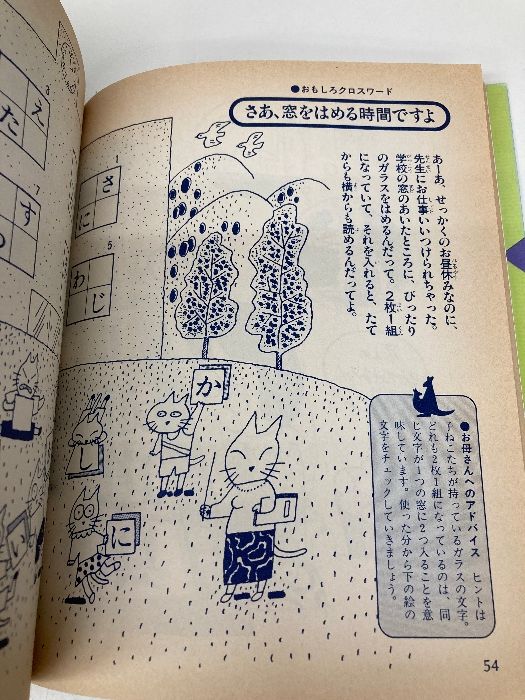 ●おもしろクロスワード
さあ、窓をはめる時間ですよ
あーあ、せっかくのお昼休みなのに、
先生にお仕事いいつけられちゃった。
学校の窓のあいたところに、ぴったり
のガラスをはめるんだって。2枚1組
になっていて、それを入れると、たて
からも横からも読めるんだってよ。
●お母さんへのアドバイス ヒントは
ねこたちが持っているガラスの文字。
どれも2枚1組になっているのは、同
じ文字が1つの窓に2つ入ることを意
味しています。使った分から下の絵の
文字をチェックしていきましょう。
え
た
7
す
1
さ
に
5
わ
じ
か
し
に
い
54